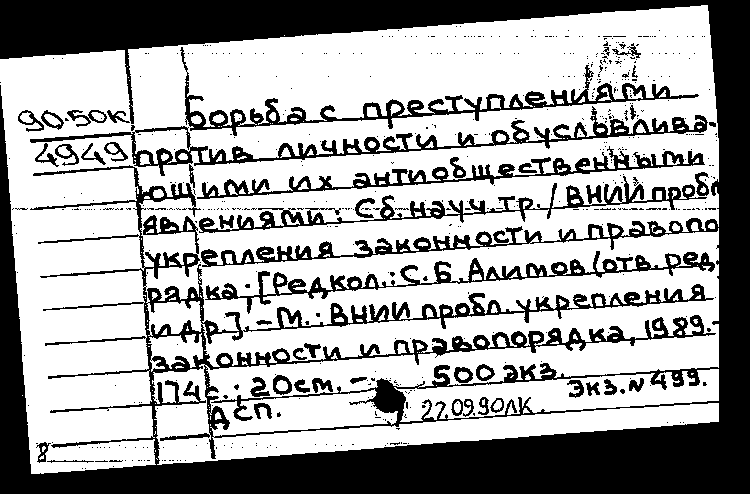 90-50к
4949
Борьба с преступлениями
против личности и обусловлива-
ющими их антиобщественными
явлениями: Сб. науч. тр. / ВНИИ пробл
укрепления законности и правопо
рядка; [Редкол.: С.Б. Алимов (отв. ред.
и др.]. - М.: ВНИИ пробл. укрепления
законности и правопорядка, 1989.-
174 с.; 20 см. - 500 экз.
ДСП. Экз. N 499.
27.09.90 ЛК.
8